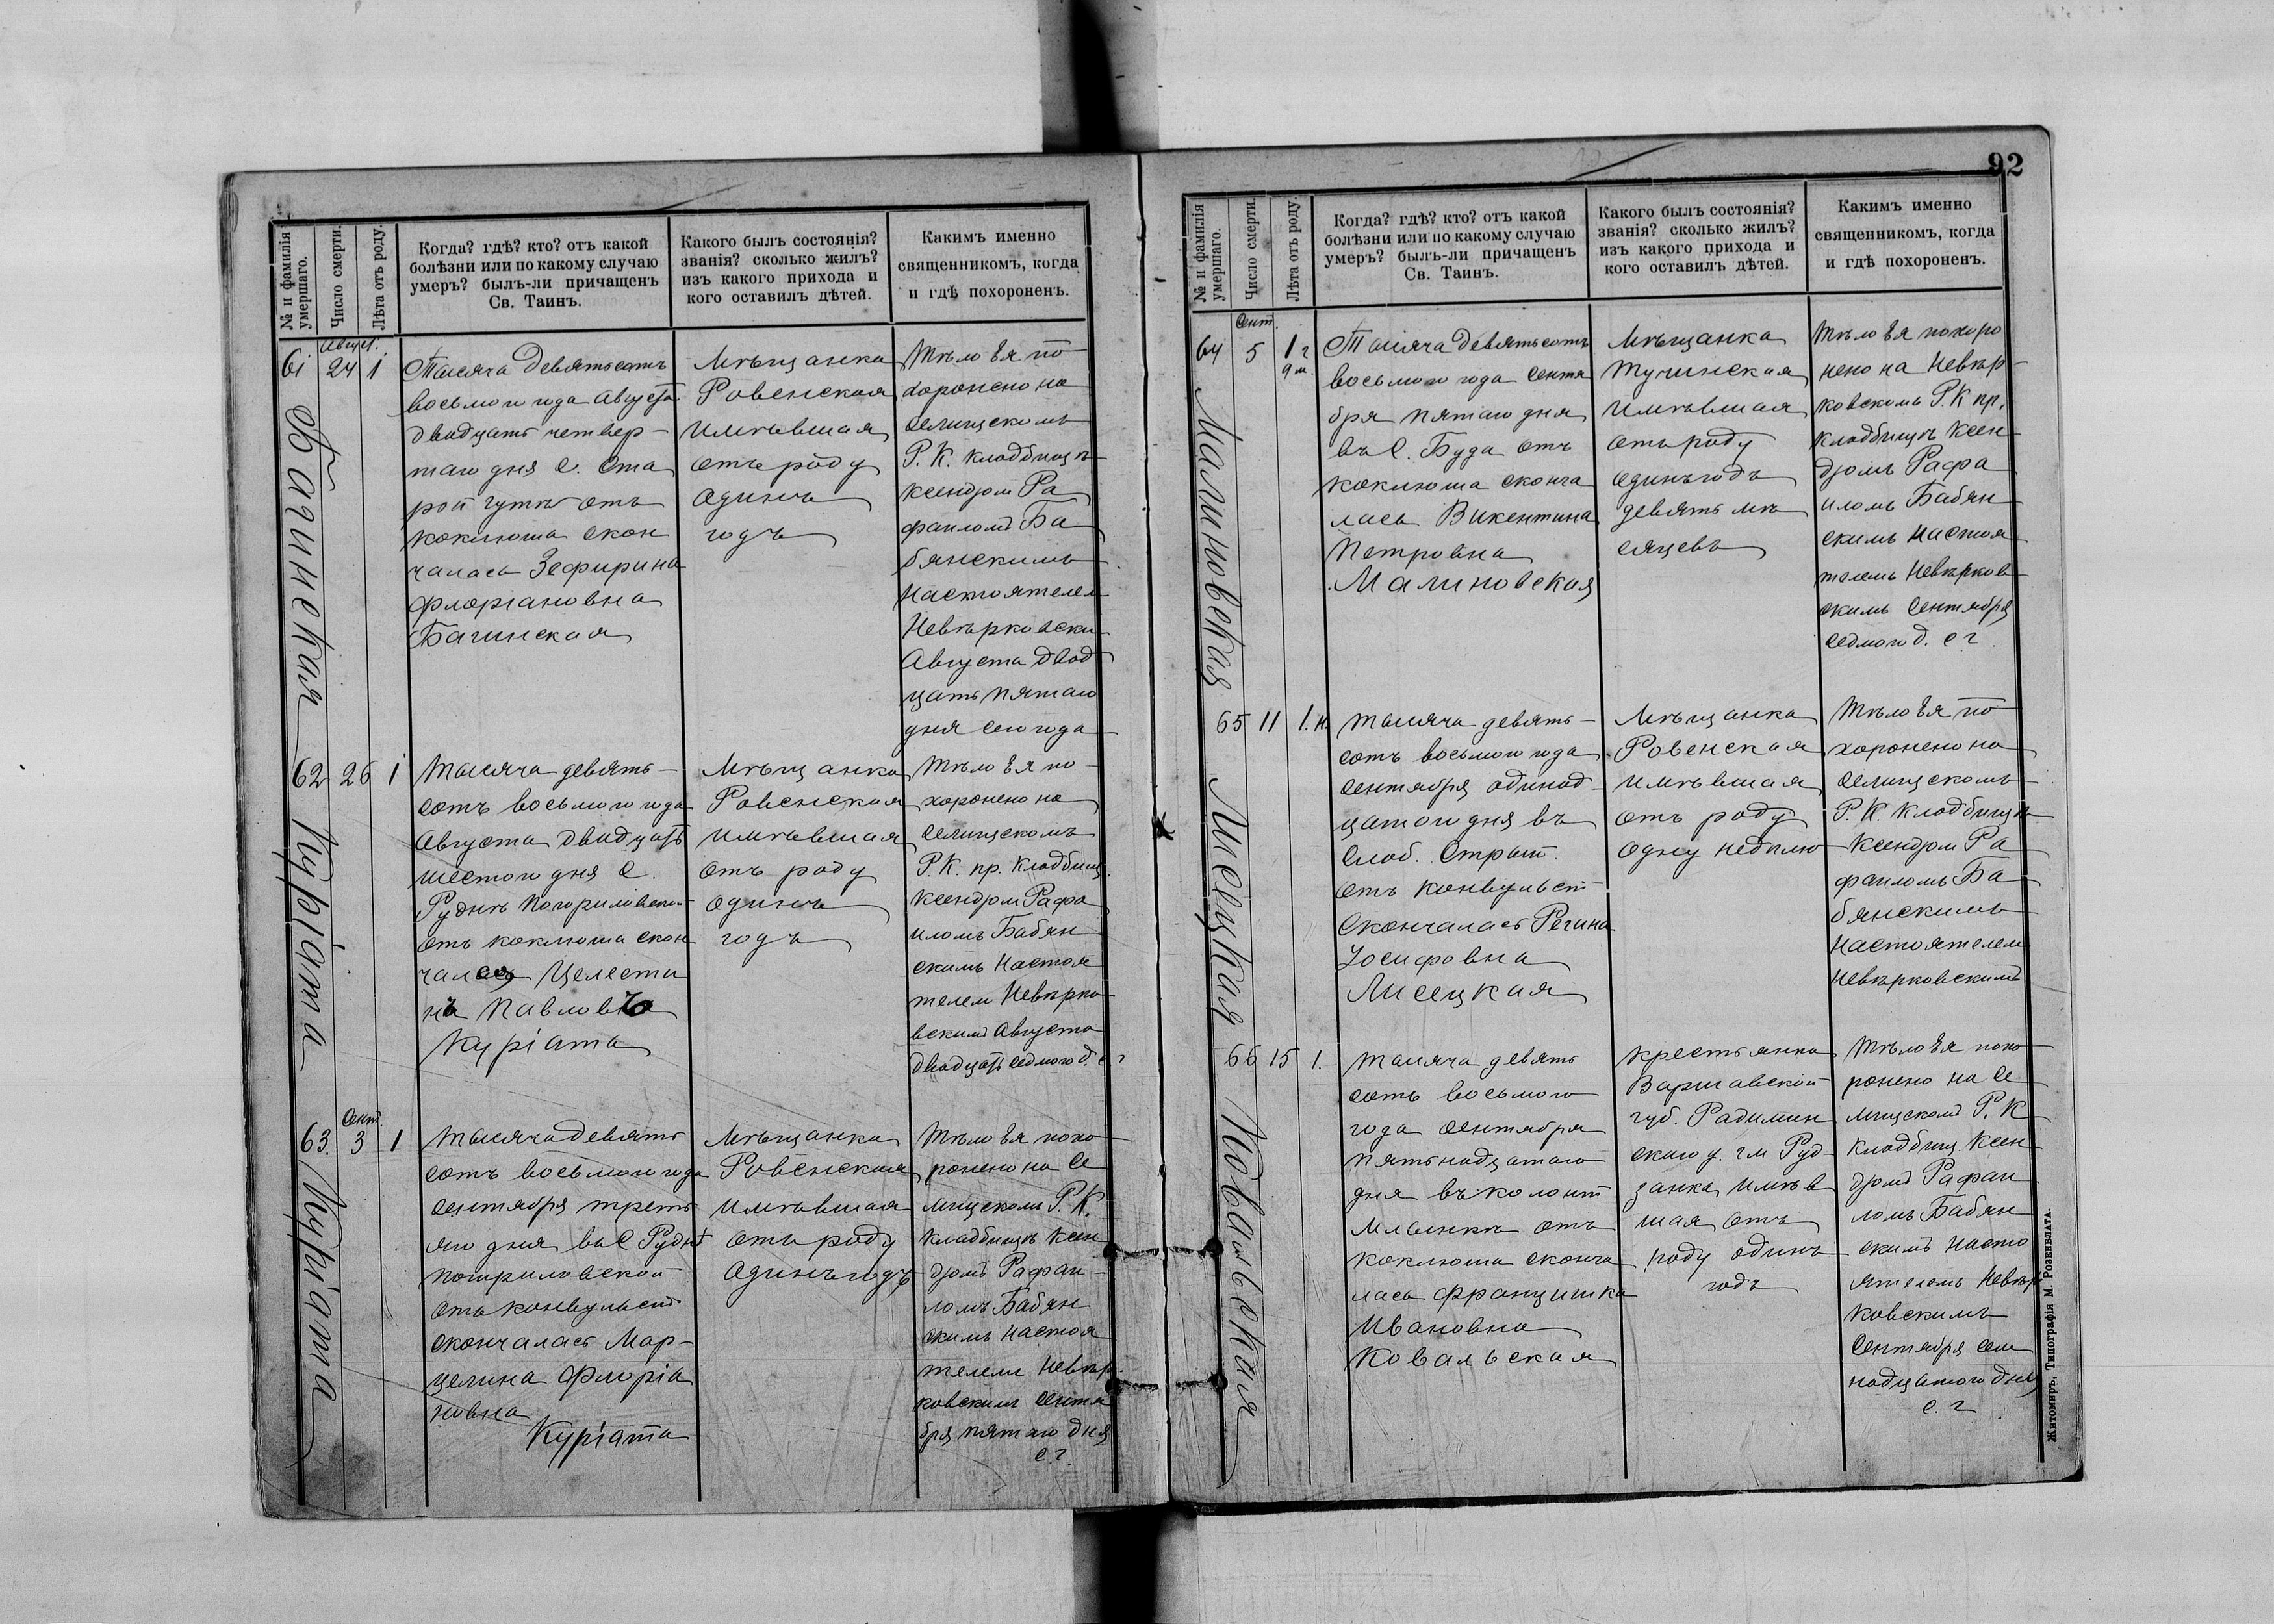 № и фамилія
умершаго.
Число смерти.
Лѣта отъ роду.
Когда? гдѣ? кто? отъ какой
болѣзни или по какому случаю
умеръ? былъ-ли причащенъ
Св. Таинъ.
Какого былъ состоянія?
званія? сколько жилъ?
изъ какого прихода и
кого оставилъ дѣтей.
Какимъ именно
священникомъ, когда
и гдѣ похороненъ.
61
Август.
24
1
Багинская
Тысяча девятьсотъ
восьмого года Августа
двадцать четвер-
таго дня с. Ста
рой гутѣ отъ
коклюша скон
чалась Зефирина
Флоріановна
Багинская
Мѣщанка
Ровенская
имѣвшая
отъ роду
одинъ
годъ
Тѣло Ея по
хоронено на
Селищскомъ
Р. К. кладбищѣ
Ксендзом Ра
фаиломъ Ба
бянскимъ
Настоятелем
Невѣрковски
Августа двад
цать пятаго
дня сего года
62
26
1
Куріата
Тысяча девять-
сотъ восьмого года
Августа двадцать
шестого дня С.
Руднѣ Погориловской
отъ коклюша скон
чался Целести
нъ Павловъ
Куріата
Мѣщанка
Ровенская
имѣвшая
отъ роду
одинъ
годъ
Тѣло Ея по-
хоронено на
Селищскомъ
Р. К. пр. кладбищ.
Ксендзом Рафа
иломъ Бабян
скимъ Настоя
телем Невѣрко
вскимъ Августа
двадцать седмого д. с г
63.
Сент.
3
1
Куріата
Тысяча девять
сотъ восьмого года
Сентября треть
яго дня въ С Руднѣ
погориловской
отъ конвульсій
скончалась Мар-
целина Флоріа
новна
Куріата
Мѣщанка
Ровенская
имѣвшая
отъ роду
одинъ годъ
Тѣло Ея похо
ронено на Се
лищскомъ Р. К.
Кладбищѣ Ксен
дзомъ Рафаи-
ломъ Бабян
скимъ Настоя
телемъ Невѣр-
ковскимъ Сентя
бря пятаго дня
с. г.
92
№ и фамилія
умершаго.
Число смерти.
Лѣта отъ роду.
Когда? гдѣ? кто? отъ какой
болѣзни или по какому случаю
умеръ? былъ-ли причащенъ
Св. Таинъ.
Какого былъ состоянія?
званія? сколько жилъ?
изъ какого прихода и
кого оставилъ дѣтей.
Какимъ именно
священникомъ, когда
и гдѣ похороненъ.
64
Сент.
5
1 г
9 м.
Малиновская
Тысяча девятьсотъ
восьмого года Сентя
бря пятаго дня
въ С. Буда отъ
коклюша сконча
лась Викентина
Петровна
Малиновская
Мѣщанка
Тучинская
имѣвшая
отъ роду
одинъ годъ
девять мѣ
сяцевъ
Тѣло Ея похоро
нено на Невѣр-
ковскомъ Р. К пр.
кладбищѣ Ксен
дзомъ Рафа
иломъ Бабян
скимъ Настоя
телемъ Невѣрков
скимъ Сентября
седмого д. с г.
65
11
1. н.
Лисецкая
Тысяча девять-
сотъ восьмого года
Сентября одинад-
цатого дня въ
Слоб. Страт.
отъ конвульсій
Скончалась Регина
Іосифовна
Лисецкая
Мѣщанка
Ровенская
имѣвшая
отъ роду
одну недѣлю
Тѣло Ея по
хоронено на
Селищскомъ
Р. К. Кладбищѣ
Ксендзом Ра
фаиломъ Ба
бянскимъ
Настоятелем
Невѣрковскимъ
66
15
1.
Ковальская
Тысяча девять
сотъ восьмого
года Сентября
пятьнадцатаго
дня въ колоніи
Ильинкѣ отъ
коклюша сконча
лась Францишка
Ивановна
Ковальская
Крестьянка
Варшавской
губ. Радимин
скаго у. гм Руд-
занка, имѣв
шая отъ
роду одинъ
годъ
Тѣло Ея похо
ронено на Се
лищскомъ Р. К
Кладбищ. Ксен
дзомъ Рафаи
ломъ Бабян
скимъ Насто
ятелемъ Невѣр
ковскимъ
Сентября сем
надцатого дня
с. г
Житомиръ, Типографія М. Розенблата.